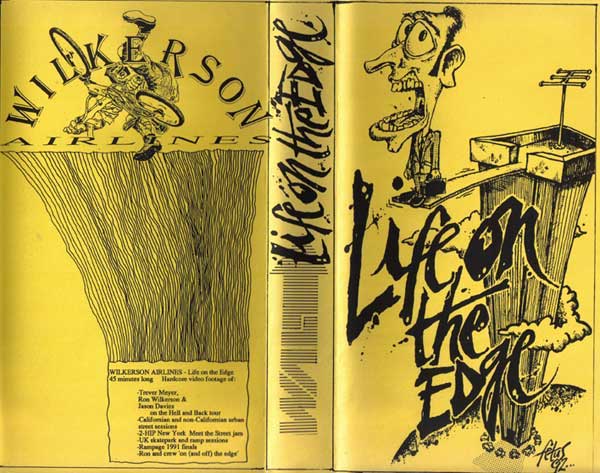 WILKERSON
AIRLINES
WILKERSON AIRLINES - Life on the Edge
45 minutes long Hardcore video footage of:
-Trever Meyer,
Ron Wilkerson &
Jason Davies
on the Hell and Back tour
-Californian and non-Californian urban
street sessions
-2-HIP New York Meet the Street jam
-UK skatepark and ramp sessions
-Rampage 1991 finals
-Ron and crew 'on (and off) the edge'
Life on the EDGE
Life on
the
EDge